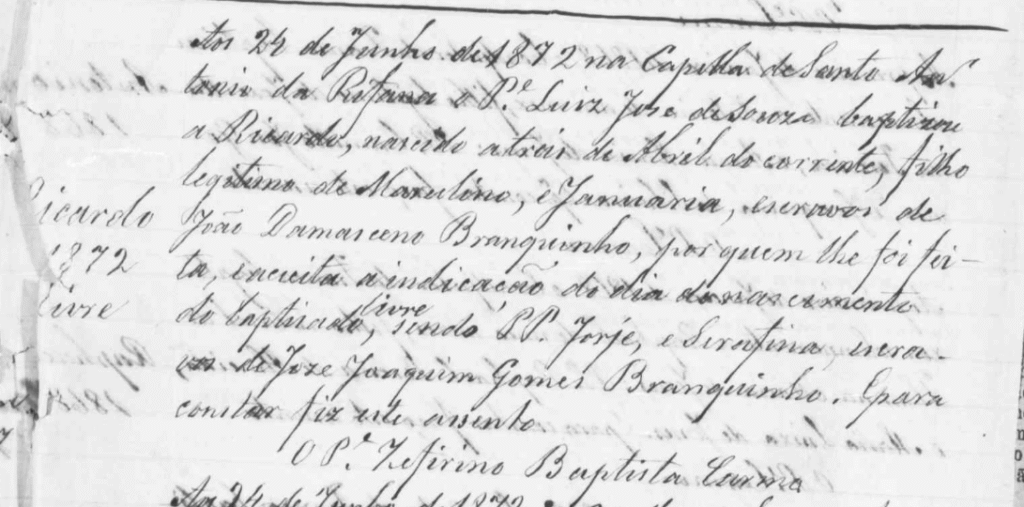 Aos 24 de Junho de 1872 na Capella de Santo An-
tonio da Rifana o Pe. Luiz Jose de Souza baptizou
a Ricardo, nascido a trois de Abril do corrente, filho
Ricardo
legitimo de Marulino, e Januaria, escravos de
1872
João Damasceno Branquinho, por quem lhe foi fei-
livre
ta, e acceita a indicação do dia do nascimento
do baptizado, livre, sendo PP. Jorje, e Serafina, escra-
vos de Joze Joaquim Gomes Branquinho. E para
constar fiz este assento
O Pe. Zefirino Baptista Carmo
Ao 24 de Junho de 1872